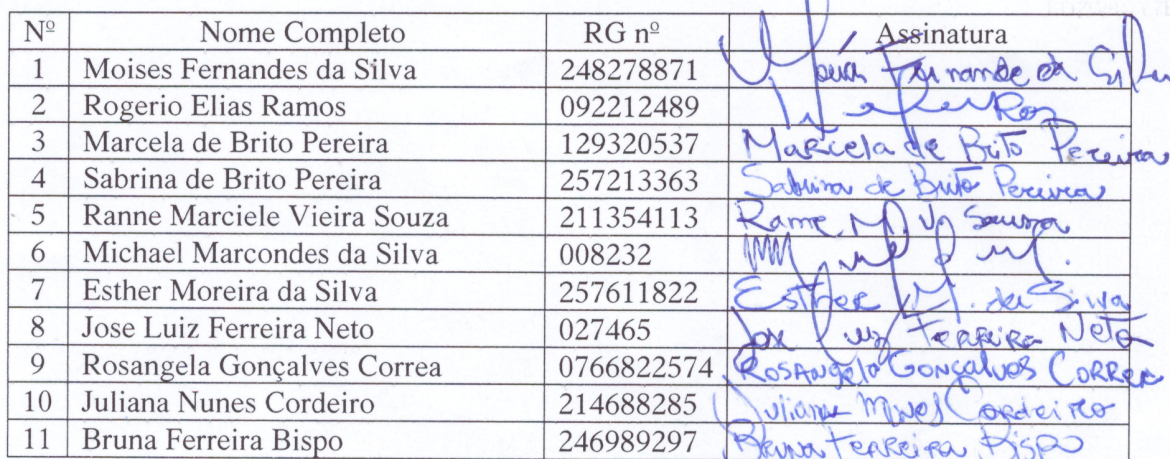 Nº Nome Completo RG nº Assinatura
1 Moises Fernandes da Silva 248278871
2 Rogerio Elias Ramos 092212489
3 Marcela de Brito Pereira 129320537 Marcela de Brito Pereira
4 Sabrina de Brito Pereira 257213363 Sabrina de Brito Pereira
5 Ranne Marciele Vieira Souza 211354113 Ranne M. V. Souza
6 Michael Marcondes da Silva 008232
7 Esther Moreira da Silva 257611822 Esther M. da Silva
8 Jose Luiz Ferreira Neto 027465 Jose Luiz Ferreira Neto
9 Rosangela Gonçalves Correa 0766822574 Rosangela Gonçalves Correa
10 Juliana Nunes Cordeiro 214688285 Juliana Nunes Cordeiro
11 Bruna Ferreira Bispo 246989297 Bruna Ferreira Bispo